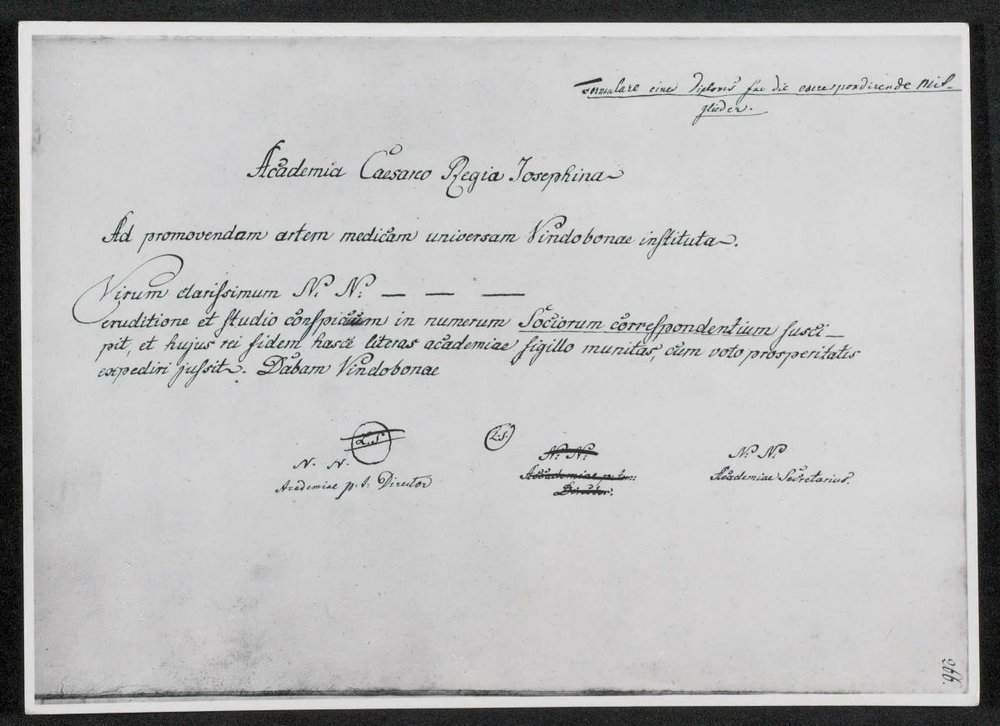 Formulare eines Diploms für die correspondirende Mit-
glieder.
Academia Caesareo Regia Josephina
Ad promovendam artem medicam universam Vindobonae instituta.
Virum clarissimum N. N. — — —
eruditione et studio conspicuum in numerum Sociorum correspondentium susci-
pit, et hujus rei fidem hasce literas academiae sigillo munitas, cum voto prosperitatis
expediri jussit. Dabam Vindobonae
L.S. L.S.
N. N. N. N. N. N.
Academiae p. t. Director Academiae p. t. Academiae Secretarius.
Director.